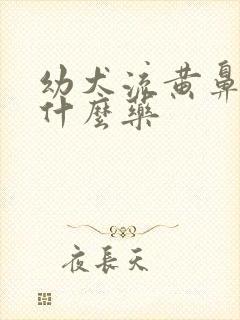 幼犬流黄鼻
什麼藥
夜長天